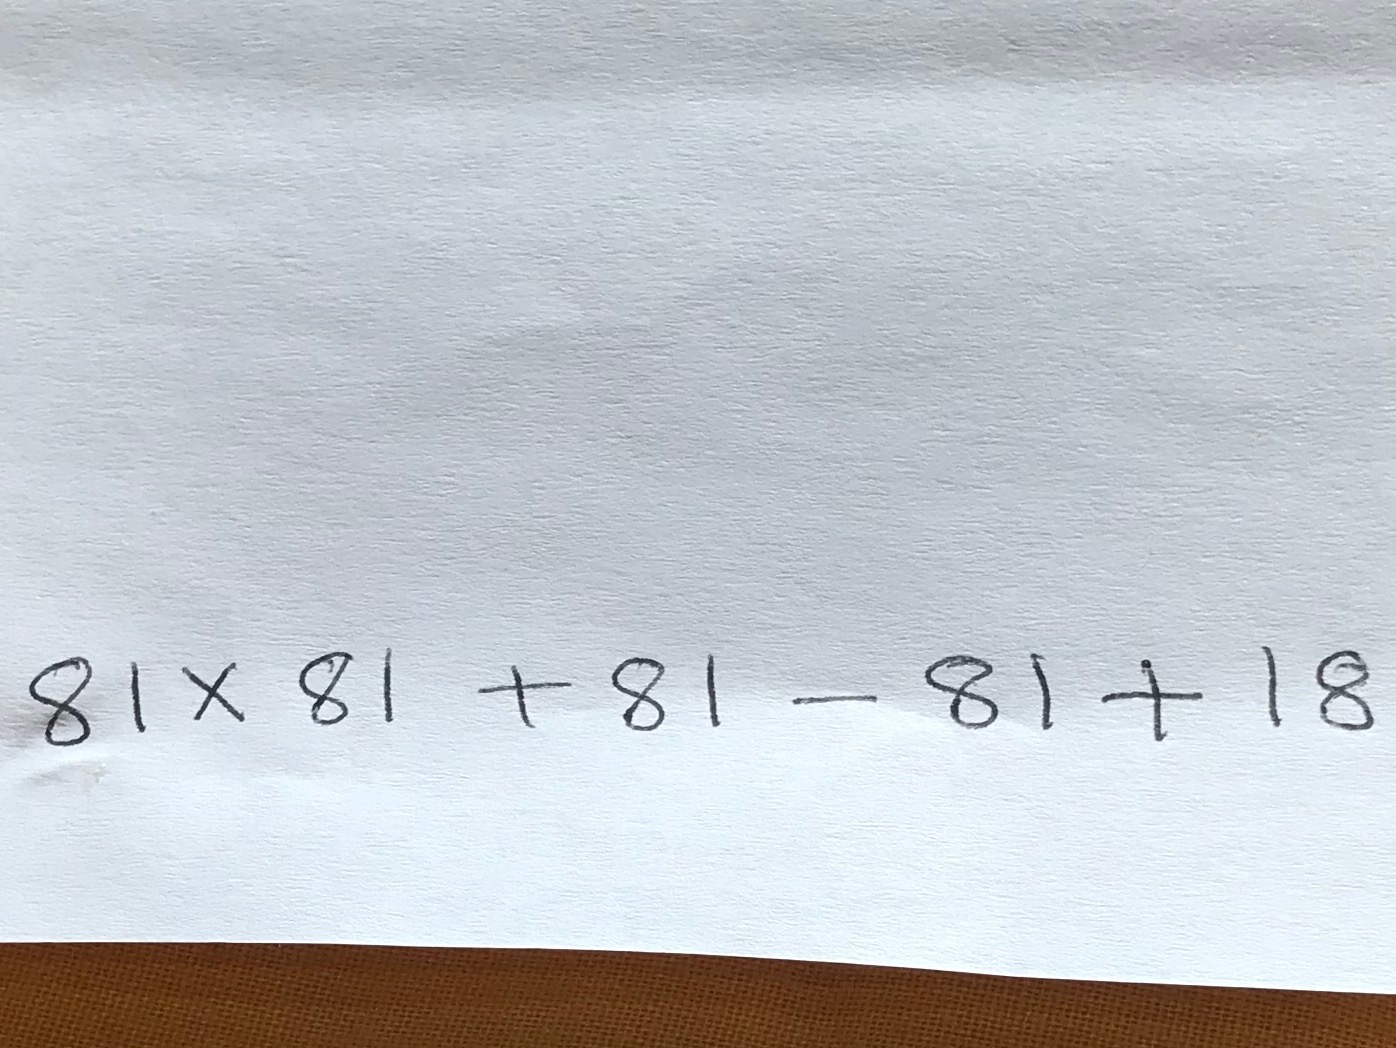 81 × 81 + 81 - 81 + 18